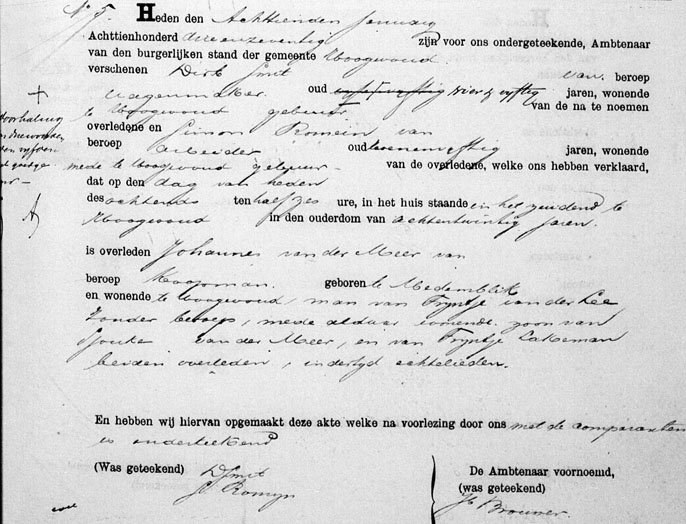 No 5. Heden den Achttienden Januarij
Achttienhonderd drieenzeventig zijn voor ons ondergeteekende, Ambtenaar
van den burgerlijken stand der gemeente Hoogwoud
verschenen Dirk Smit van beroep
wagenmaker oud vier en vyftig jaren, wonende
te Hoogwoud gebuur van de na te noemen
overledene en Simon Romein van
beroep arbeider oud jaren, wonende
mede te Hoogwoud gebuur van de overledene, welke ons hebben verklaard,
dat op den dag van heden
des ochtends ten half zes ure, in het huis staande in het zuideind te
Hoogwoud in den ouderdom van achtentwintig jaren.
is overleden Johannes van der Meer van
beroep Koopman. geboren te Medemblik
en wonende te Hoogwoud, man van Tryntje van der Lee
zonder beroep, mede aldaar wonende. zoon van
Sjouke van der Meer, en van Tryntje Lakeman
beiden overleden, indertyd echtelieden.
En hebben wij hiervan opgemaakt deze akte welke na voorlezing door ons met de comparanten
is onderteekend
(Was geteekend) D Smit De Ambtenaar voornoemd,
S. Romyn (was geteekend)
Brouwer.